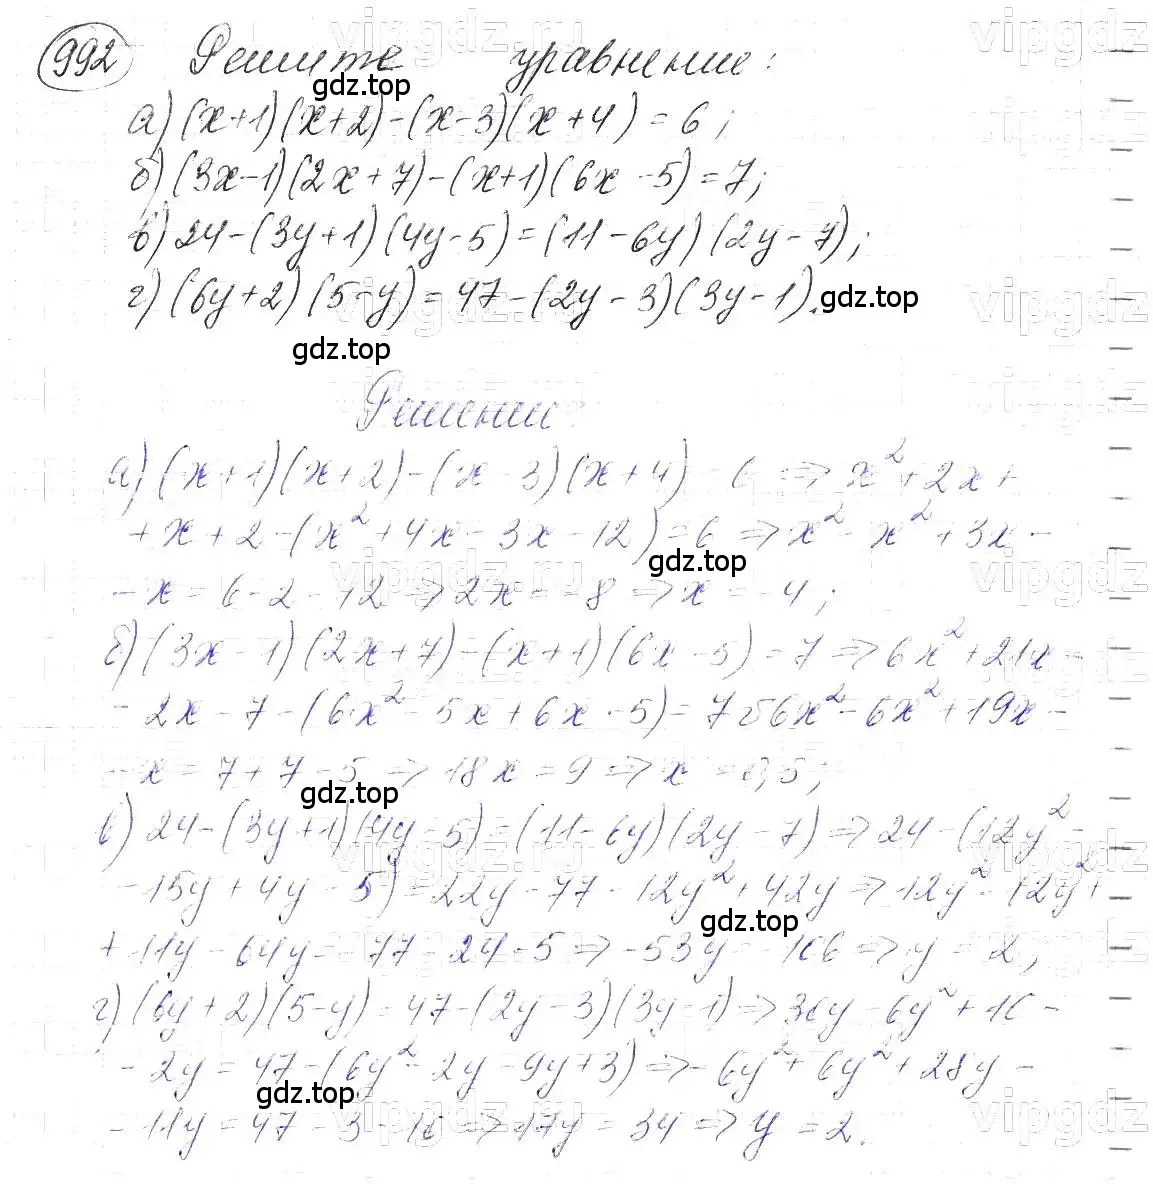 992 Решите уравнение:
а) (x+1)(x+2)-(x-3)(x+4) = 6;
б) (3x-1)(2x+7)-(x+1)(6x-5)=7;
в) 24-(3y+1)(4y-5)=(11-6y)(2y-7);
г) (6y+2)(5-y)=47-(2y-3)(3y-1).
Решение:
а) (x+1)(x+2)-(x-3)(x+4)=6 => x²+2x+
+x+2-(x²+4x-3x-12)=6 => x²-x²+3x-
-x=6-2-12 => 2x=-8 => x=-4;
б) (3x-1)(2x+7)-(x+1)(6x-5)=7 => 6x²+21x-
-2x-7-(6x²-5x+6x-5)=7 6x²-6x²+19x-
-x=7+7-5 => 18x=9 => x=0,5;
в) 24-(3y+1)(4y-5)=(11-6y)(2y-7) => 24-(12y²-
-15y+4y-5)=22y-77-12y²+42y => 12y²-12y²+
+11y-64y=-77-24-5 => -53y=-106 => y=2;
г) (6y+2)(5-y)=47-(2y-3)(3y-1) => 30y-6y²+10-
-2y=47-(6y²-2y-9y+3) => -6y²+6y²+28y-
-11y=47-3-10 => 17y=34 => y=2.
gdz.top
gdz.top
gdz.top
gdz.top
gdz.top
gdz.top
gdz.top
vipgdz.ru